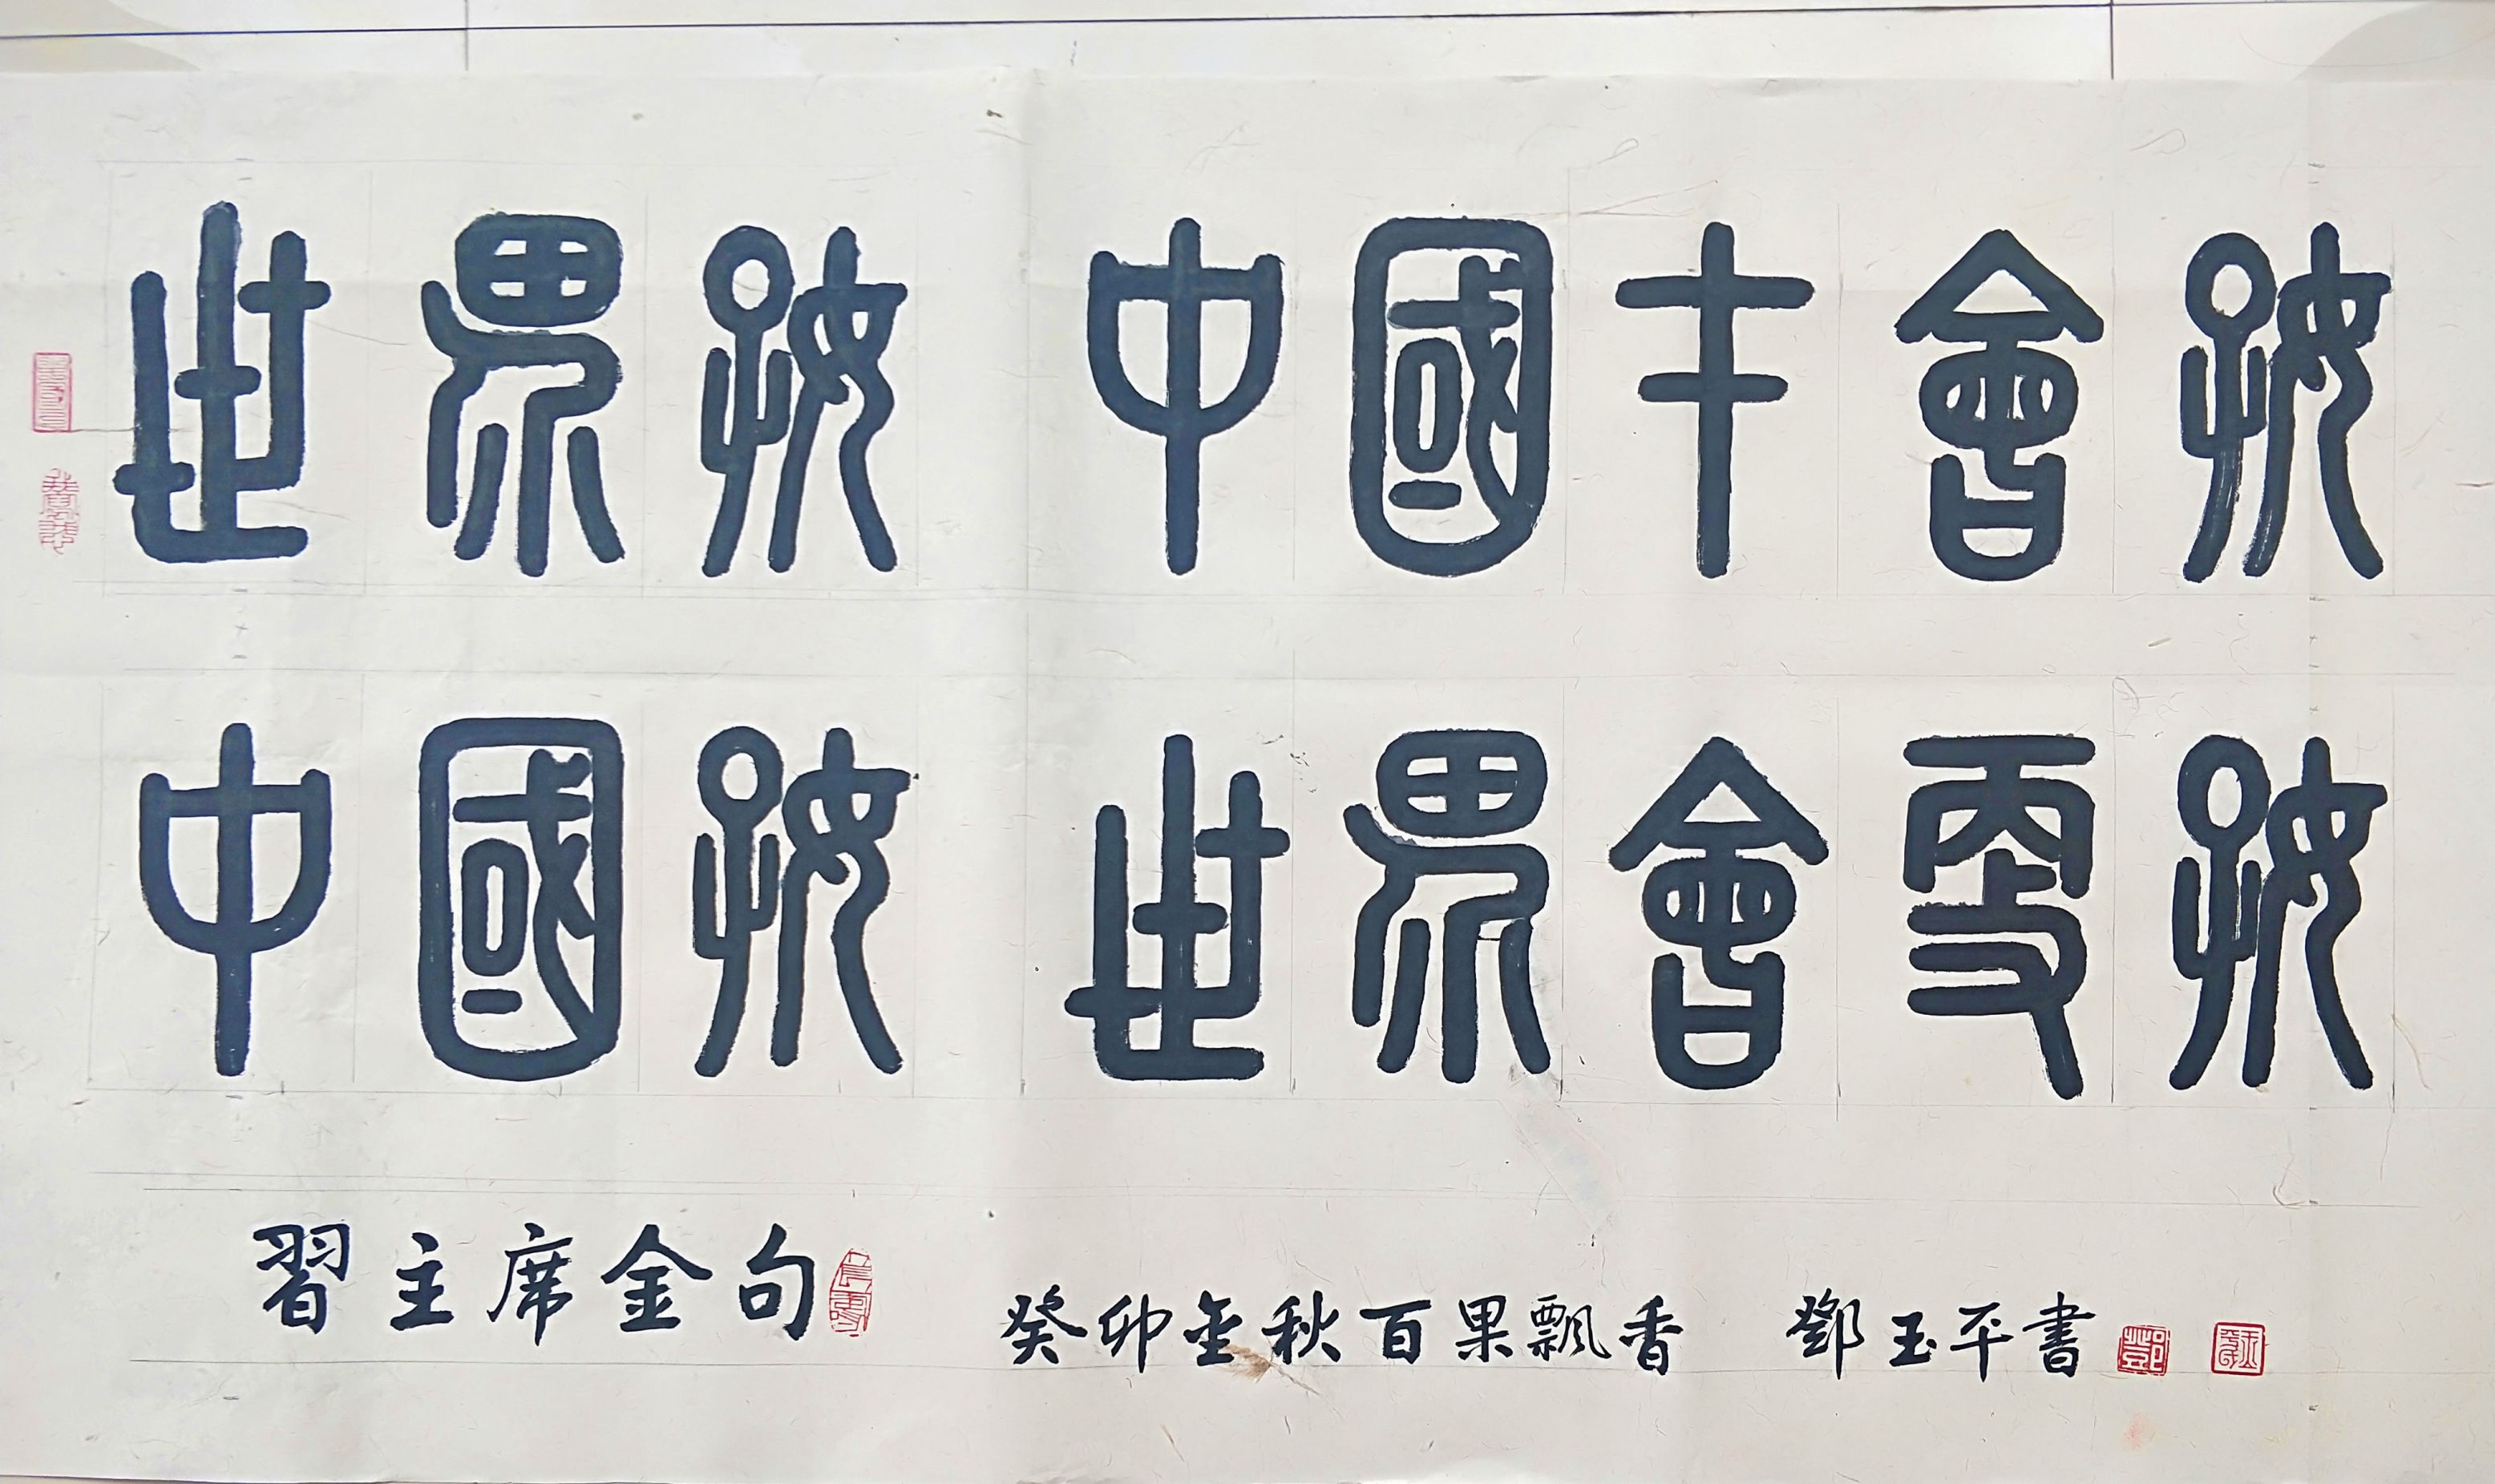 世界好中國才會好
中國好世界會更好
習主席金句 癸卯金秋百果飄香 鄧玉平書